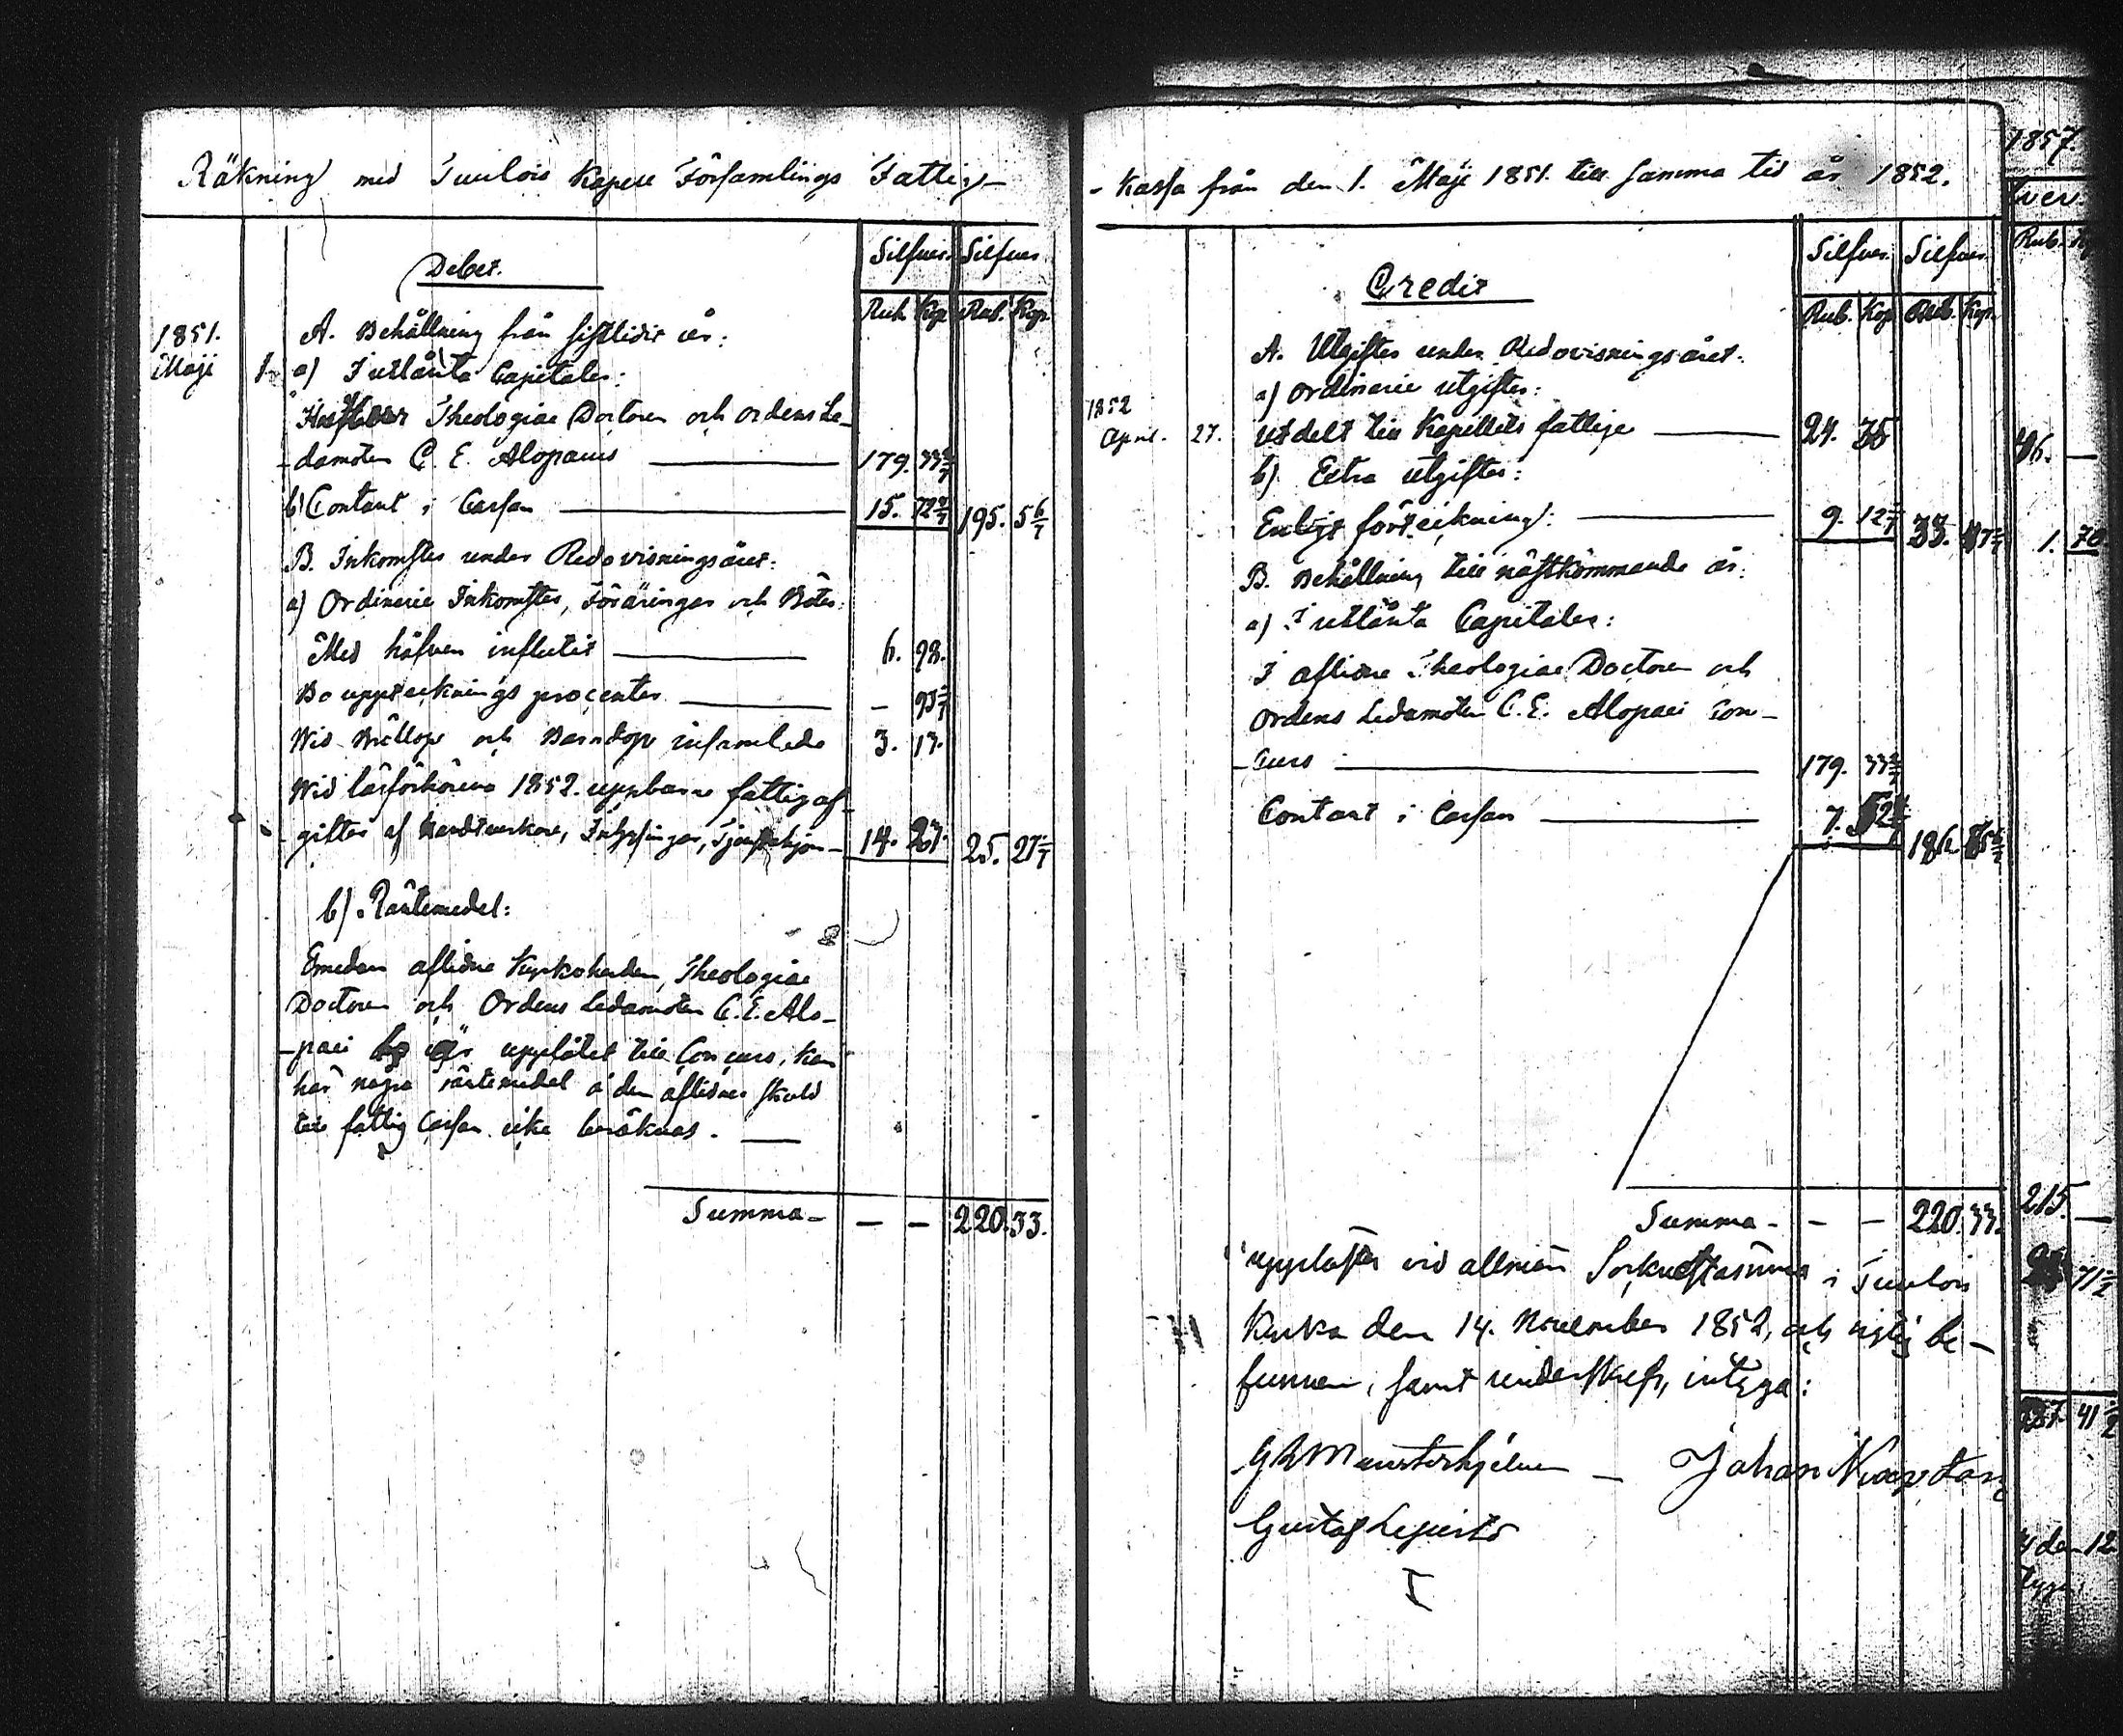 Räkning med Tuulois Kapell Församlings Fattig-
Debet.
Silfver. Silfver
Rub. Kop. Rub. Kop.
1851.
Maji 1.
A. Behållning från sistlidit år:
a) I utlånta Capitaler:
Theologiae Doctoren och Ordens Le-
-damoten C. E. Alopaeus — 179. 33 2/7
b) Contant i Cassan — 15. 72 4/7 195. 5 6/7
B. Inkomster under Redovisningsåret:
a) Ordinarie Inkomster, Föräringar och Böter:
Med håfven influtit — 6. 98.
Bouppteckningsprocenter — – 93 1/7
Wid Bröllop och Barndop insamlade 3. 13.
Wid läsförhören 1852. uppburne fattigaf-
gifter af Handtverkare, Inhysingar, Tjenstehjon – 14. 23. 25. 27 1/7
b). Räntemedel:
Emedan aflidne Kyrkoherden, Theologiae
Doctoren och Ordens Ledamoten C. E. Alo-
-paei är upplåtet till Concurs, kan
här några räntemedel å den aflidnes skuld
till fattig Cassan icke beräknas. —
Summa – — — 220. 33.
- Kassa från den 1. Maji 1851. till samma tid år 1852.
Credit
Silfver. Silfver.
Rub. Kop. Rub. Kop.
A. Utgifter under Redovisningsåret:
a) Ordinarie utgifter:
1852
April. 27. Utdelt till Kapellets fattige — 24. 35
b) Extra utgifter:
Enligt förteckning: — 9. 12 2/7 33. 47 2/7
B. Behållning till nästkommande år:
a) I utlånta Capitaler:
I aflidne Theologiae Doctoren och
Ordens Ledamoten C. E. Alopaei Con-
-curs — 179. 33 2/7
Contant i Cassan — 7. 52 186. 85
Summa – — — 220. 33.
vid allmän Sockenstämma i Tuulois
Kyrka den 14. November 1852, och rigtig be-
funnen, samt underskrefs, intyga:
Munsterhjelm — Johan
Gustaf
1857.
Rub.
46. —
1. 70.
215. —
71 1/2
41 1/2
den 12